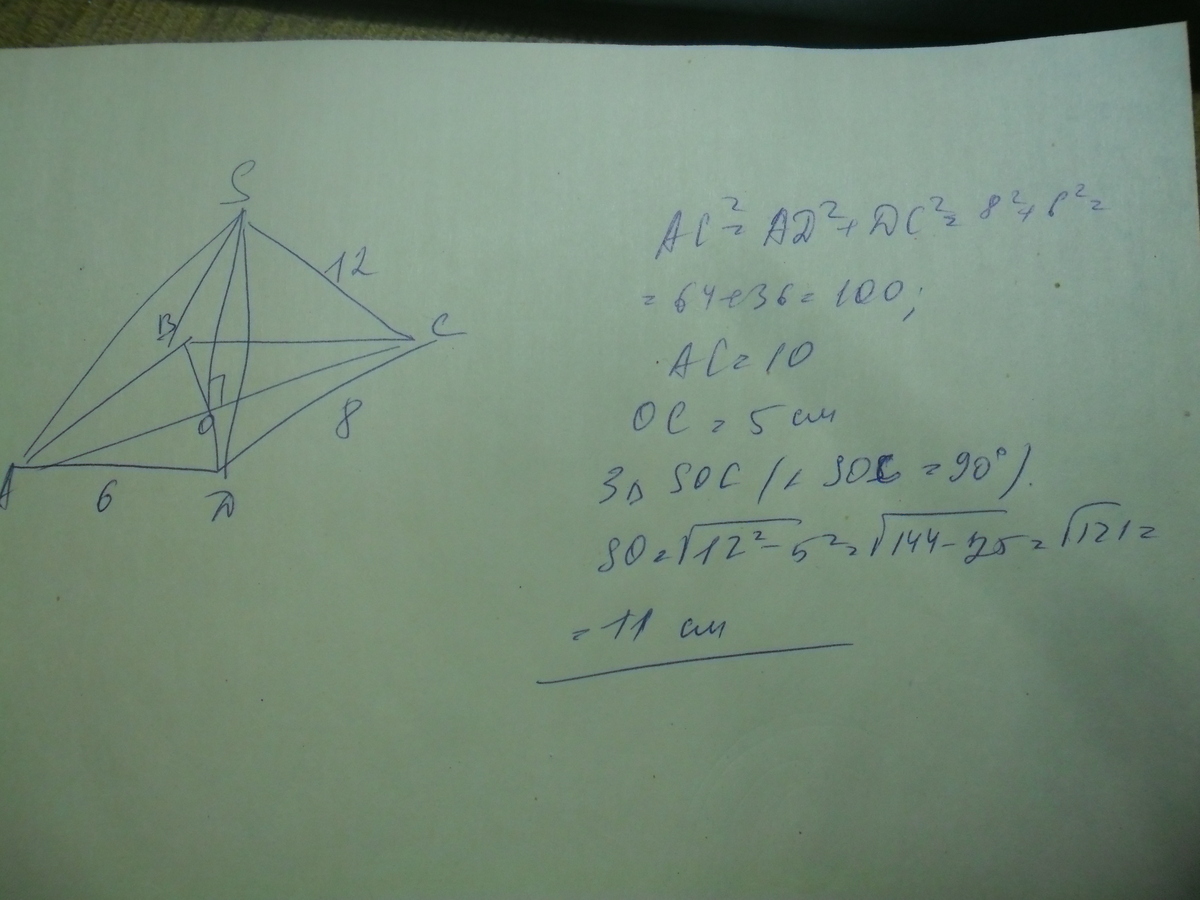 S
12
B
C
O
8
A
6
D
AC² = AD² + DC² = 8² + 6² =
= 64 + 36 = 100;
AC = 10
OC = 5 см
З Δ SOC (∠ SOC = 90°).
SO = √12² - 5² = √144 - 25 = √121 =
= 11 см